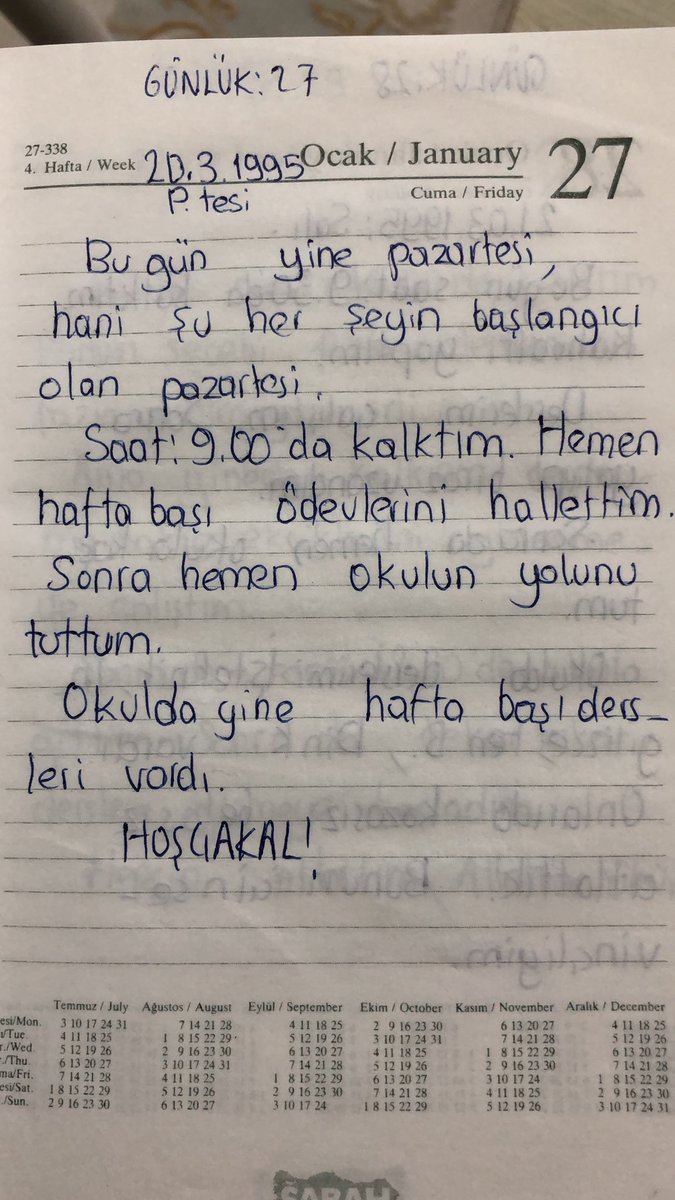 GÜNLÜK: 27
27-338
4. Hafta / Week 20.3.1995 Ocak / January 27
P. tesi Cuma / Friday
Bu gün yine pazartesi,
hani şu her şeyin başlangıcı
olan pazartesi.
Saat: 9.00'da kalktım. Hemen
hafta başı ödevlerini hallettim.
Sonra hemen okulun yolunu
tuttum.
Okulda yine hafta başı ders-
leri vardı.
HOŞÇAKAL!
Temmuz / July Ağustos / August Eylül / September Ekim / October Kasım / November Aralık / December
esi/Mon. 3 10 17 24 31 7 14 21 28 4 11 18 25 2 9 16 23 30 6 13 20 27 4 11 18 25
ı/Tue 4 11 18 25 1 8 15 22 29 5 12 19 26 3 10 17 24 31 7 14 21 28 5 12 19 26
r./Wed. 5 12 19 26 2 9 16 23 30 6 13 20 27 4 11 18 25 1 8 15 22 29 6 13 20 27
r./Thu. 6 13 20 27 3 10 17 24 31 7 14 21 28 5 12 19 26 2 9 16 23 30 7 14 21 28
ma/Fri. 7 14 21 28 4 11 18 25 1 8 15 22 29 6 13 20 27 3 10 17 24 1 8 15 22 29
esi/Sat. 1 8 15 22 29 5 12 19 26 2 9 16 23 30 7 14 21 28 4 11 18 25 2 9 16 23 30
./Sun. 2 9 16 23 30 6 13 20 27 3 10 17 24 1 8 15 22 29 5 12 19 26 3 10 17 24 31